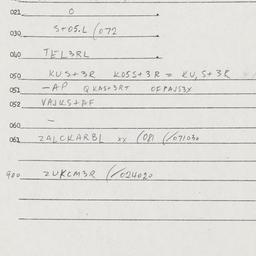 021 0
030 S+05.L (072
040 TEL3RL
050 KUS+3R K05S+3R = KU,S+3R
051 -AP QKAS+3RT OFPAJS3X
052 VAJKS+AF
060 -
061 2ALCKARBL xx (081 (/071030
900 2UKCM3R (/024020